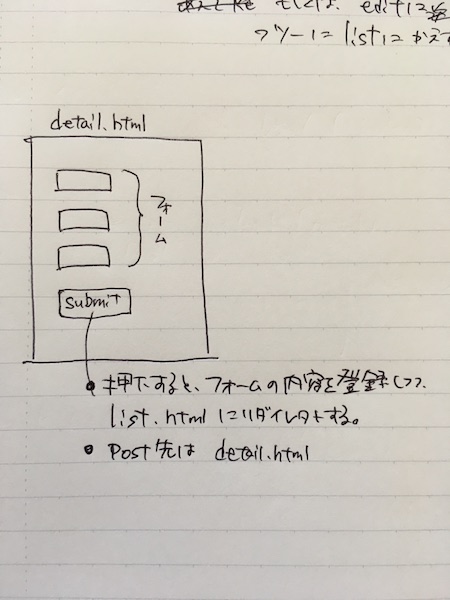 もしくは、edit に
フツーに list にかえす
detail.html
フォーム
submit
押下すると、フォームの内容を登録しつつ
list.html にリダイレクトする。
Post先は detail.html